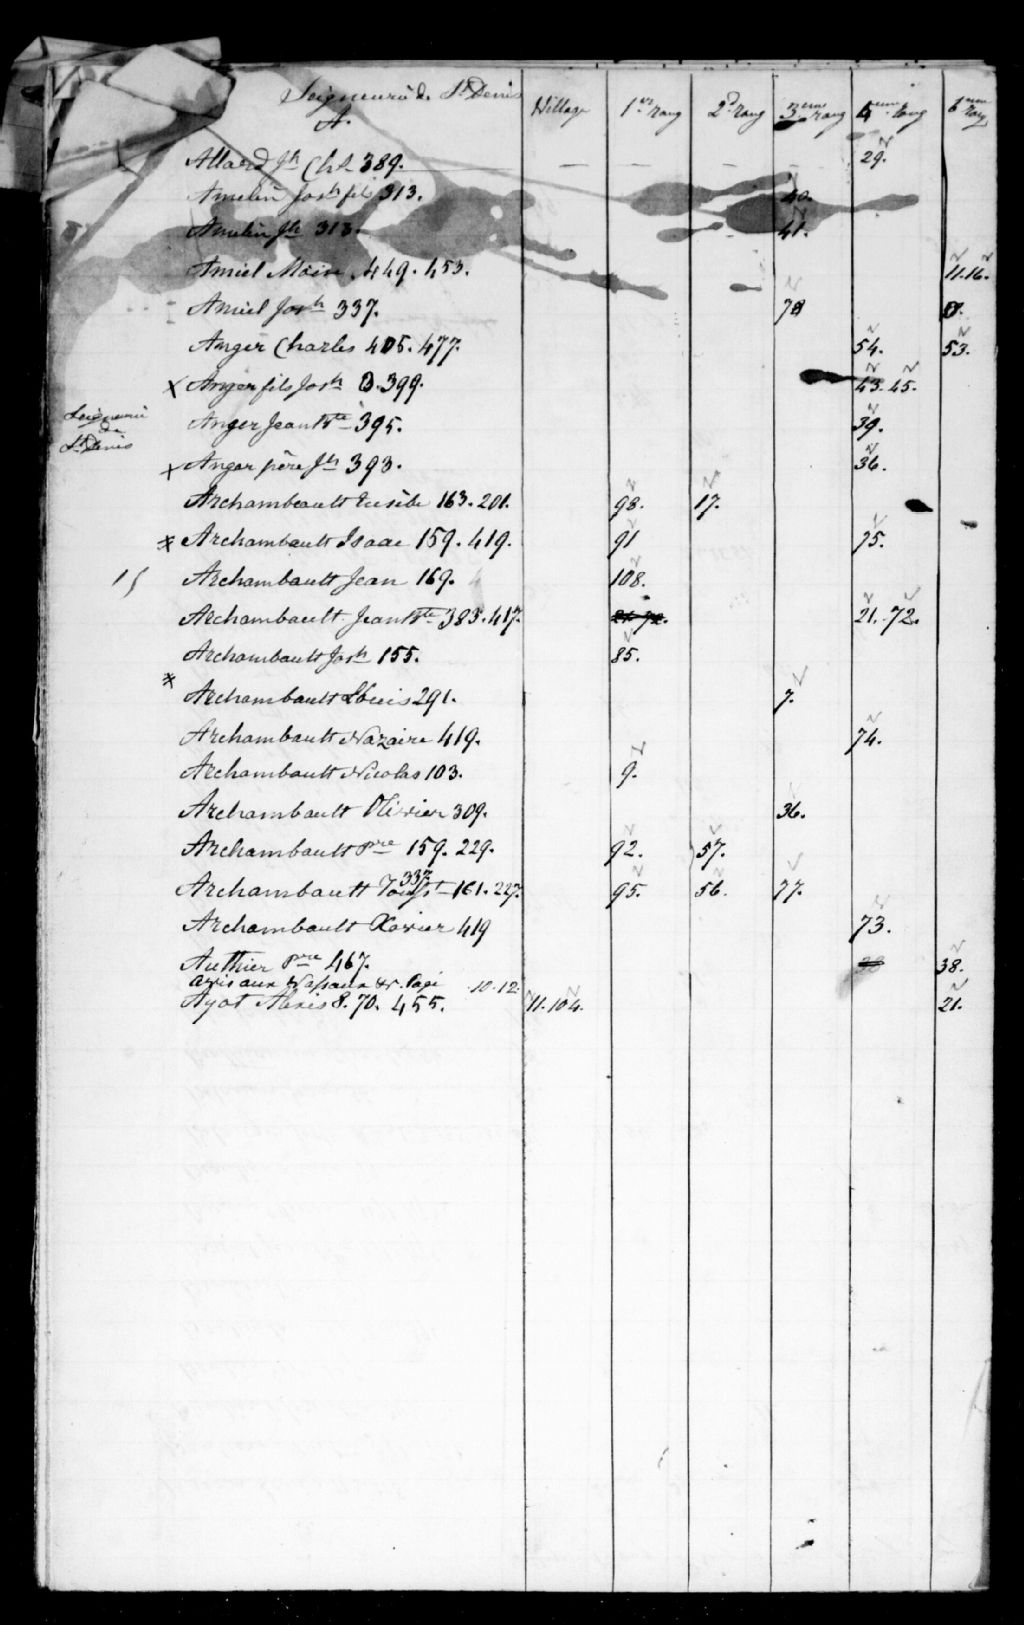 Seigneurie de St Denis
A.
Village 1er rang 2d rang 3eme rang 4eme rang 6eme rang
Allard Jh Chs 389. 29.
Amelin Josh fils 313. 40.
Amelin Jh 313. 41.
Amiel Moise. 449. 453. 11. 16.
Amiel Josh 337. 78
Anger Charles 405. 477. 54. 53.
x Anger fils Josh 399. 43. 45.
Seigneurie
de
St Denis
Anger Jean Bte 395. 39.
x Anger père Jh 393. 36.
Archambeault Eusèbe 163. 201. 98. 17.
Archambault Isaac 159. 419. 91 75.
Archambault Jean 169. 108.
Archambault Jean Bte 383. 417. 21. 72.
Archambault Josh 155. 85.
Archambault Louis 291. 7.
Archambault Nazaire 419. 74.
Archambault Nicolas 103. 9.
Archambault Olivier 309. 36.
Archambault Pre 159. 229. 92. 57.
Archambault Toust 337. 161. 227. 95. 56. 77.
Archambault Xavier 419 73.
Authier Pre 467. 38.
avis aux Page 10. 12.
Ayot Alexis 8. 70. 455. 11. 104. 21.